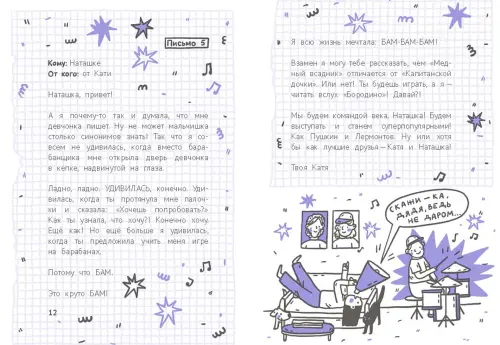 Письмо 5
Кому: Наташке
От кого: от Кати
Наташка, привет!
А я почему-то так и думала, что мне
девчонка пишет. Ну не может мальчишка
столько синонимов знать! Так что я со-
всем не удивилась, когда вместо бара-
банщика мне открыла дверь девчонка
в кепке, надвинутой на глаза.
Ладно, ладно. УДИВИЛАСЬ, конечно. Уди-
вилась, когда ты протянула мне палоч-
ки и сказала: «Хочешь попробовать?»
Как ты узнала, что хочу?! Конечно хочу.
Ещё как! Но ещё больше я удивилась,
когда ты предложила учить меня игре
на барабанах.
Потому что БАМ.
Это круто БАМ!
12
Я всю жизнь мечтала: БАМ-БАМ-БАМ!
Взамен я могу тебе рассказать, чем «Мед-
ный всадник» отличается от «Капитанской
дочки». Или нет! Ты будешь играть, а я —
читать вслух «Бородино»! Давай?!
Мы будем командой века, Наташка! Будем
выступать и станем суперпопулярными!
Как Пушкин и Лермонтов. Ну или хотя
бы как лучшие друзья — Катя и Наташка!
Твоя Катя
СКАЖИ-КА,
ДЯДЯ, ВЕДЬ
НЕ ДАРОМ...